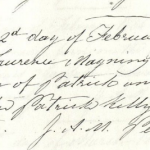 2d day of Februar
aurence Magning
of Patrick an
Patrick Kelly
J. A. M.